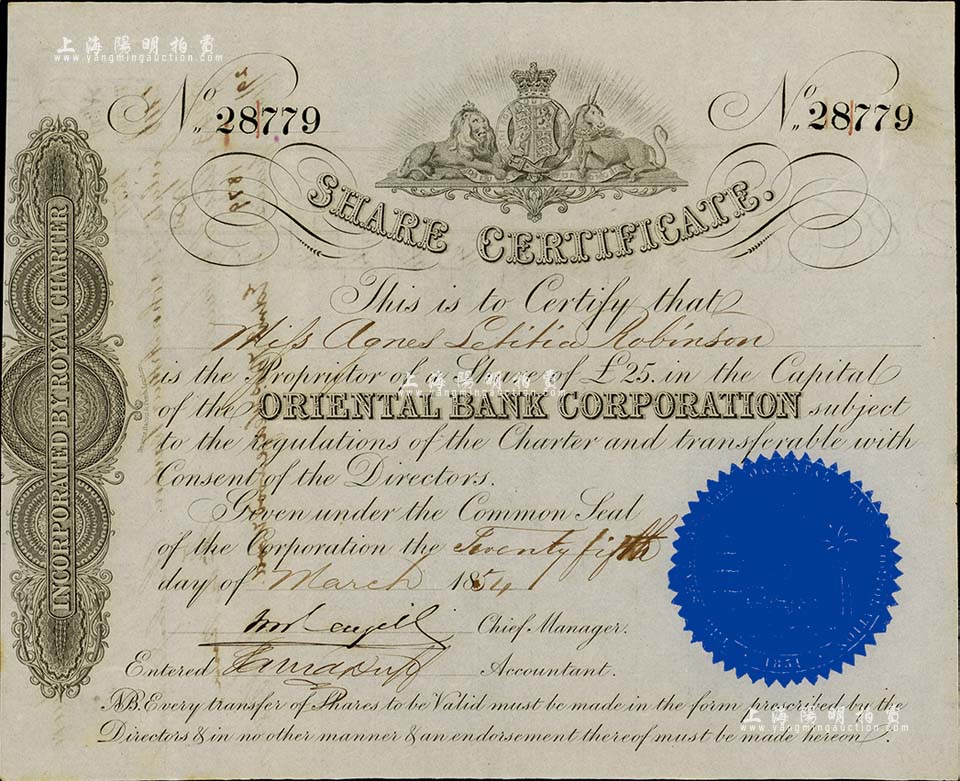 上海陽明拍賣
www.yangmingauction.com
No. 28779
No. 28779
SHARE CERTIFICATE.
INCORPORATED BY ROYAL CHARTER
This is to Certify that
Miss Agnes Letitia Robinson
is the Proprietor of a Share of £25. in the Capital
上海陽明拍賣
www.yangmingauction.com
of the ORIENTAL BANK CORPORATION subject
to the regulations of the Charter and transferable with
Consent of the Directors.
Given under the Common Seal
of the Corporation the Twenty fifth
day of March 1854
Chief Manager.
Entered Accountant.
ORIENTAL
1851
NB. Every transfer of Shares to be Valid must be made in the form prescribed by the
Directors & in no other manner & an endorsement thereof must be made hereon.
上海陽明拍賣
www.yangmingauction.com